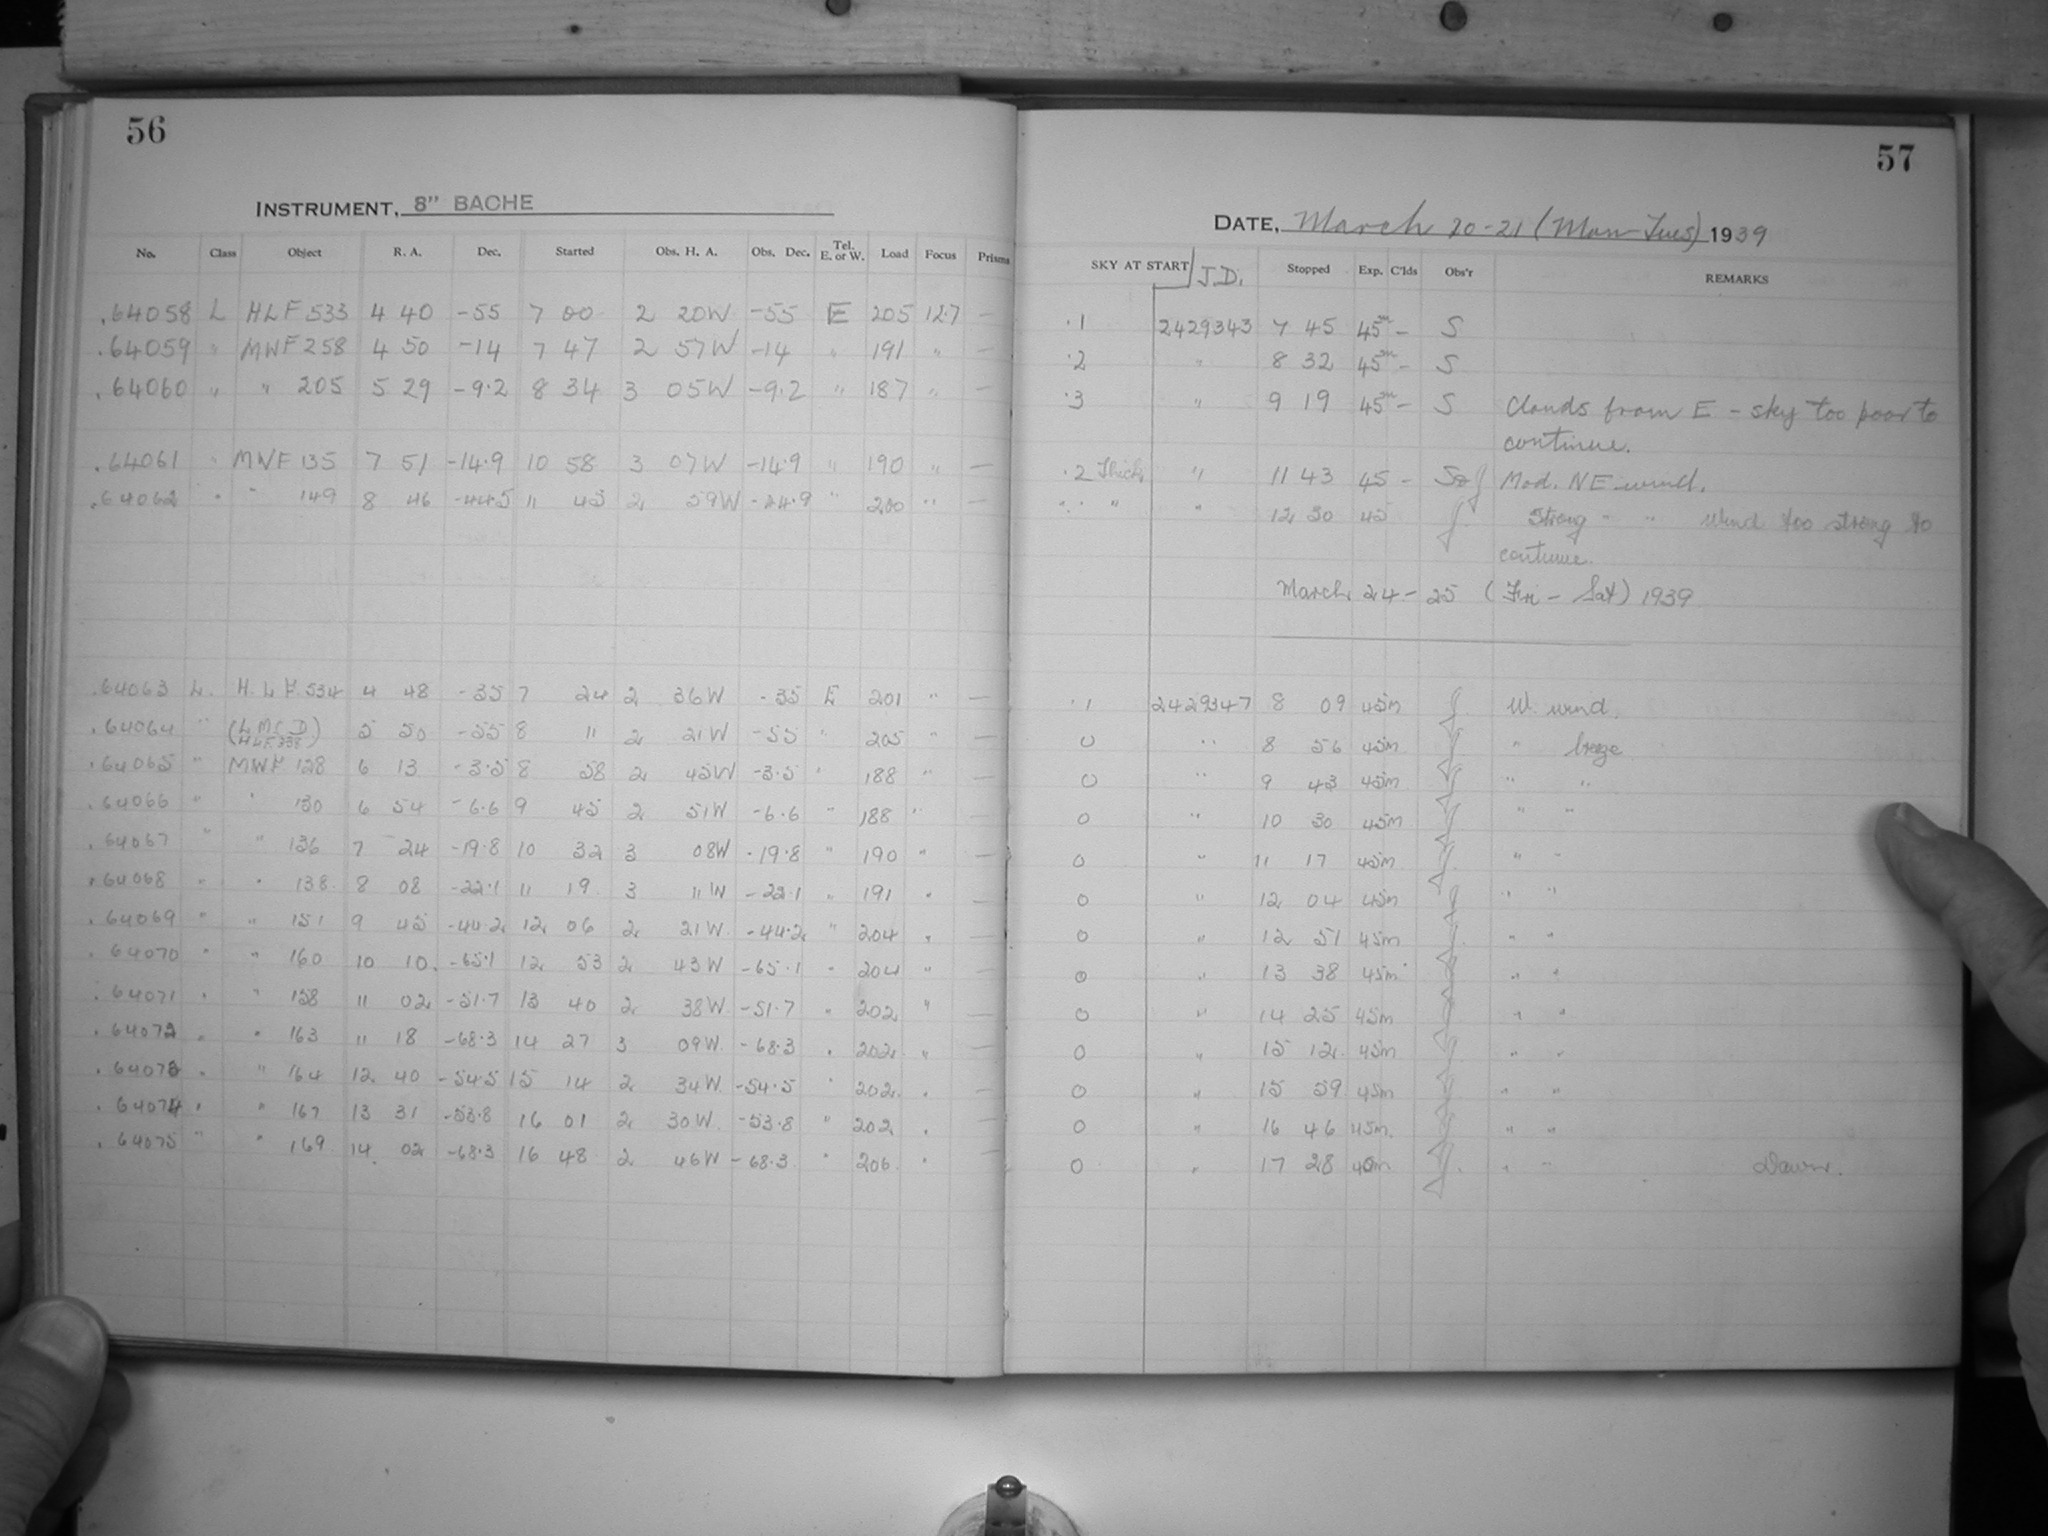 56
INSTRUMENT, 8" BACHE
No. Class Object R. A. Dec. Started Obs. H. A. Obs. Dec. Tel. E. or W. Load Focus Prisms
.64058 L HLF 533 4 40 -55 7 00 2 20W -55 E 205 12.7 —
.64059 " MWF 258 4 50 -14 7 47 2 57W -14 " 191 " —
.64060 " " 205 5 29 -9.2 8 34 3 05W -9.2 " 187 " —
.64061 " MWF 135 7 51 -14.9 10 58 3 07W -14.9 " 190 " —
.64062 " " 149 8 46 -44.5 11 45 2 59W -24.9 " 200 " —
.64063 L. H.L.F. 534 4 48 -35 7 24 2 36W -35 E 201 " —
.64064 " (L.M.C. D) 5 50 -55 8 11 2 21W -55 " 205 " —
.64065 " MWF 128 6 13 -3.5 8 58 2 45W -3.5 " 188 " —
.64066 " " 130 6 54 -6.6 9 45 2 51W -6.6 " 188 " —
.64067 " " 136 7 24 -19.8 10 32 3 08W -19.8 " 190 " —
.64068 " " 138 8 08 -22.1 11 19 3 11W -22.1 " 191 " —
.64069 " " 151 9 45 -44.2 12 06 2 21W -44.2 " 204 " —
.64070 " " 160 10 10 -65.1 12 53 2 43W -65.1 " 204 " —
.64071 " " 158 11 02 -51.7 13 40 2 38W -51.7 " 202 " —
.64072 " " 163 11 18 -68.3 14 27 3 09W -68.3 " 202 " —
.64073 " " 164 12 40 -54.5 15 14 2 34W -54.5 " 202 " —
.64074 " " 167 13 31 -53.8 16 01 2 30W -53.8 " 202 " —
.64075 " " 169 14 02 -68.3 16 48 2 46W -68.3 " 206 " —
57
DATE, March 20-21 (Mon-Tues) 1939
SKY AT START J.D. Stopped Exp. C'lds Obs'r REMARKS
.1 2429343 7 45 45m — S
.2 " 8 32 45m — S
.3 " 9 19 45m — S Clouds from E - sky too poor to
continue.
.2 Thick " 11 43 45 — S&J Mod. NE wind.
" " " 12 30 45 J Strong " " Wind too strong to
continue.
March 24-25 (Fri - Sat) 1939
.1 2429347 8 09 45m J W. wind.
0 " 8 56 45m J " breeze
0 " 9 43 45m J " "
0 " 10 30 45m J " "
0 " 11 17 45m J " "
0 " 12 04 45m J " "
0 " 12 51 45m J " "
0 " 13 38 45m J " "
0 " 14 25 45m J " "
0 " 15 12 45m J " "
0 " 15 59 45m J " "
0 " 16 46 45m J " "
0 " 17 28 40m J " " Dawn.